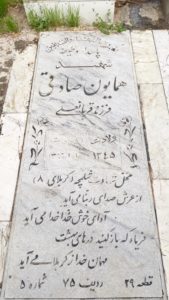 شهید
همایون صادقی
فرزند قربانعلی
ولادت
۱۳۴۵
محل شهادت شلمچه کربلای ۸
از عرش صدای ربنا می آید
آوای خوش خدا خدا می آید
فریاد که باز کنید درهای بهشت
مهمان خدا ز کربلا می آید
قطعه ۲۹ ردیف ۷۵ شماره ۵